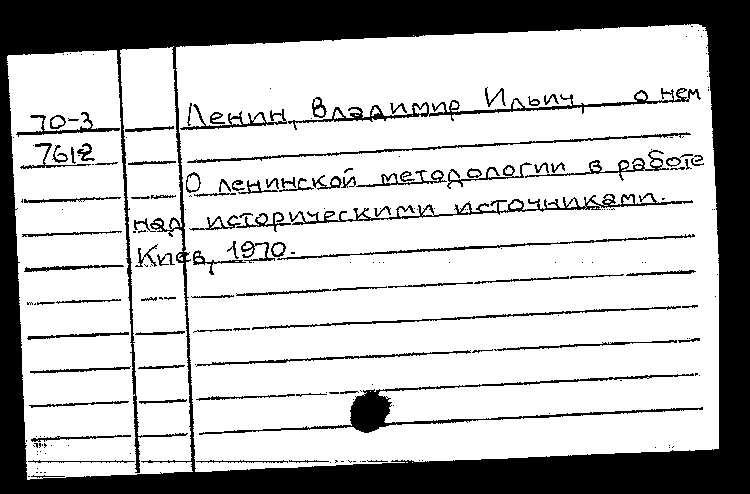 70-3 Ленин, Владимир Ильич, о нем
7612
О ленинской методологии в работе
над историческими источниками.
Киев, 1970.